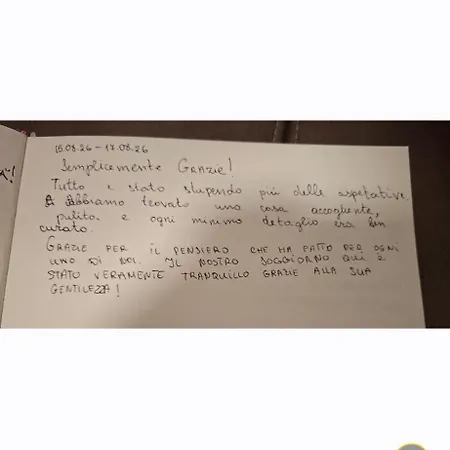 15.08.26 - 17.08.26
Semplicemente GRAZIE!
Tutto e stato stupendo più delle aspetative.
Abbiamo trovato una casa accogliente,
pulita e ogni minimo detaglio era ben
curato.
GRAZIE PER IL PENSIERO CHE HA FATTO PER OGNI
UNO DI NOI. IL NOSTRO SOGGIORNO QUI È
STATO VERAMENTE TRANQUILLO GRAZIE ALLA SUA
GENTILEZZA!